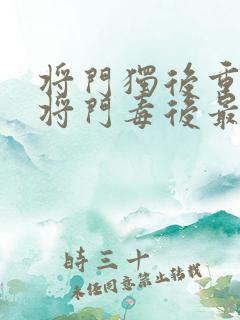 將門獨後重
將門毒後最
時三十
未經同意禁止轉載